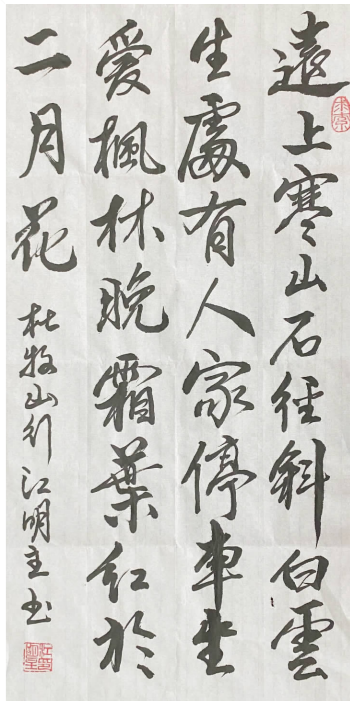 遠上寒山石徑斜白雲
生處有人家停車坐
愛楓林晚霜葉紅於
二月花
杜牧山行江明主书